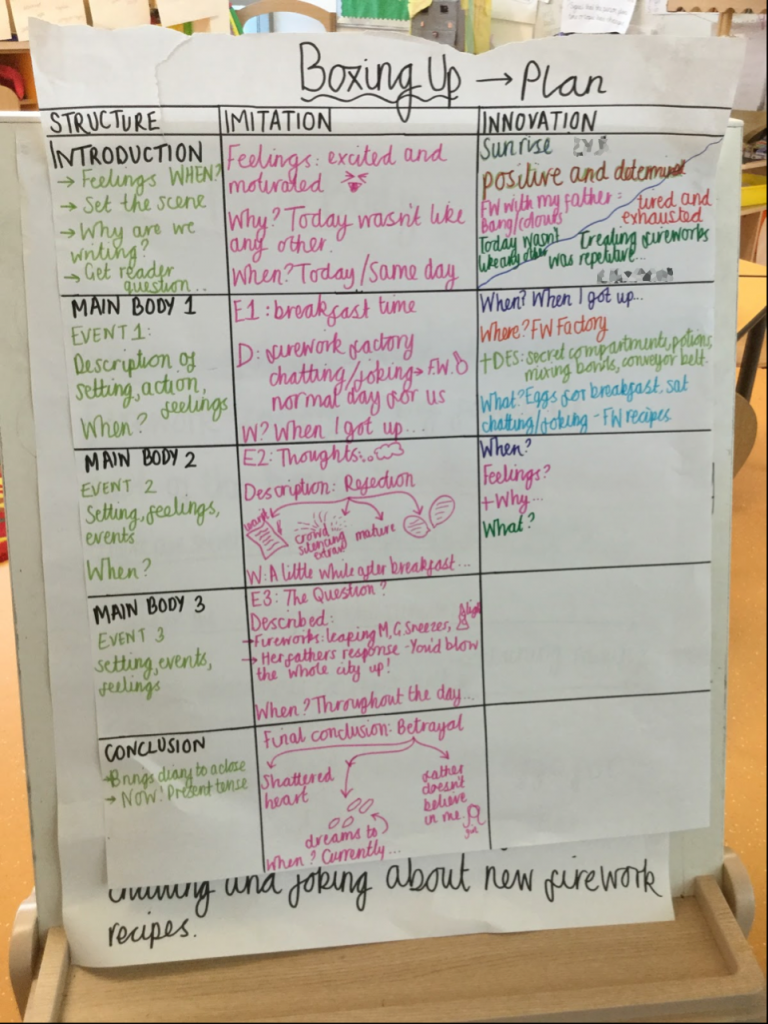 Boxing Up → Plan
STRUCTURE
IMITATION
INNOVATION
INTRODUCTION
→ Feelings WHEN?
→ Set the scene
→ Why are we
writing?
→ Get reader
question...
Feelings: excited and
motivated
Why? Today wasn't like
any other.
When? Today/Same day
Sunrise
positive and determined
FW with my father:
Bang/colours
Today wasn't
like any other
tured and
exhausted
Creating fireworks
was repetitive...
MAIN BODY 1
EVENT 1:
Description of
setting, action,
feelings
When?
E1: breakfast time
D: firework factory
chatting/joking → F.W.
normal day for us
W? When I got up...
When? When I got up...
Where? FW Factory
+DES: secret compartments, potions,
mixing bowls, conveyor belt.
What? Eggs for breakfast, sat
chatting/joking - FW recipes
MAIN BODY 2
EVENT 2
Setting, feelings,
events
When?
E2: Thoughts...
Description: Rejection
crowd
silencing
mature
W: A little while after breakfast...
When?
Feelings?
+ Why...
What?
MAIN BODY 3
EVENT 3
setting, events,
feelings
E3: The Question?
Described:
→ Fireworks: leaping M, G. Sneezes,
→ Her fathers response - You'd blow
the whole city up!
When? Throughout the day...
CONCLUSION
→ Brings diary to a close
→ Now! Present tense
Final conclusion: Betrayal
Shattered
heart
dreams to
father
doesn't
believe
in me.
When? Currently...
chatting and joking about new firework
recipes.